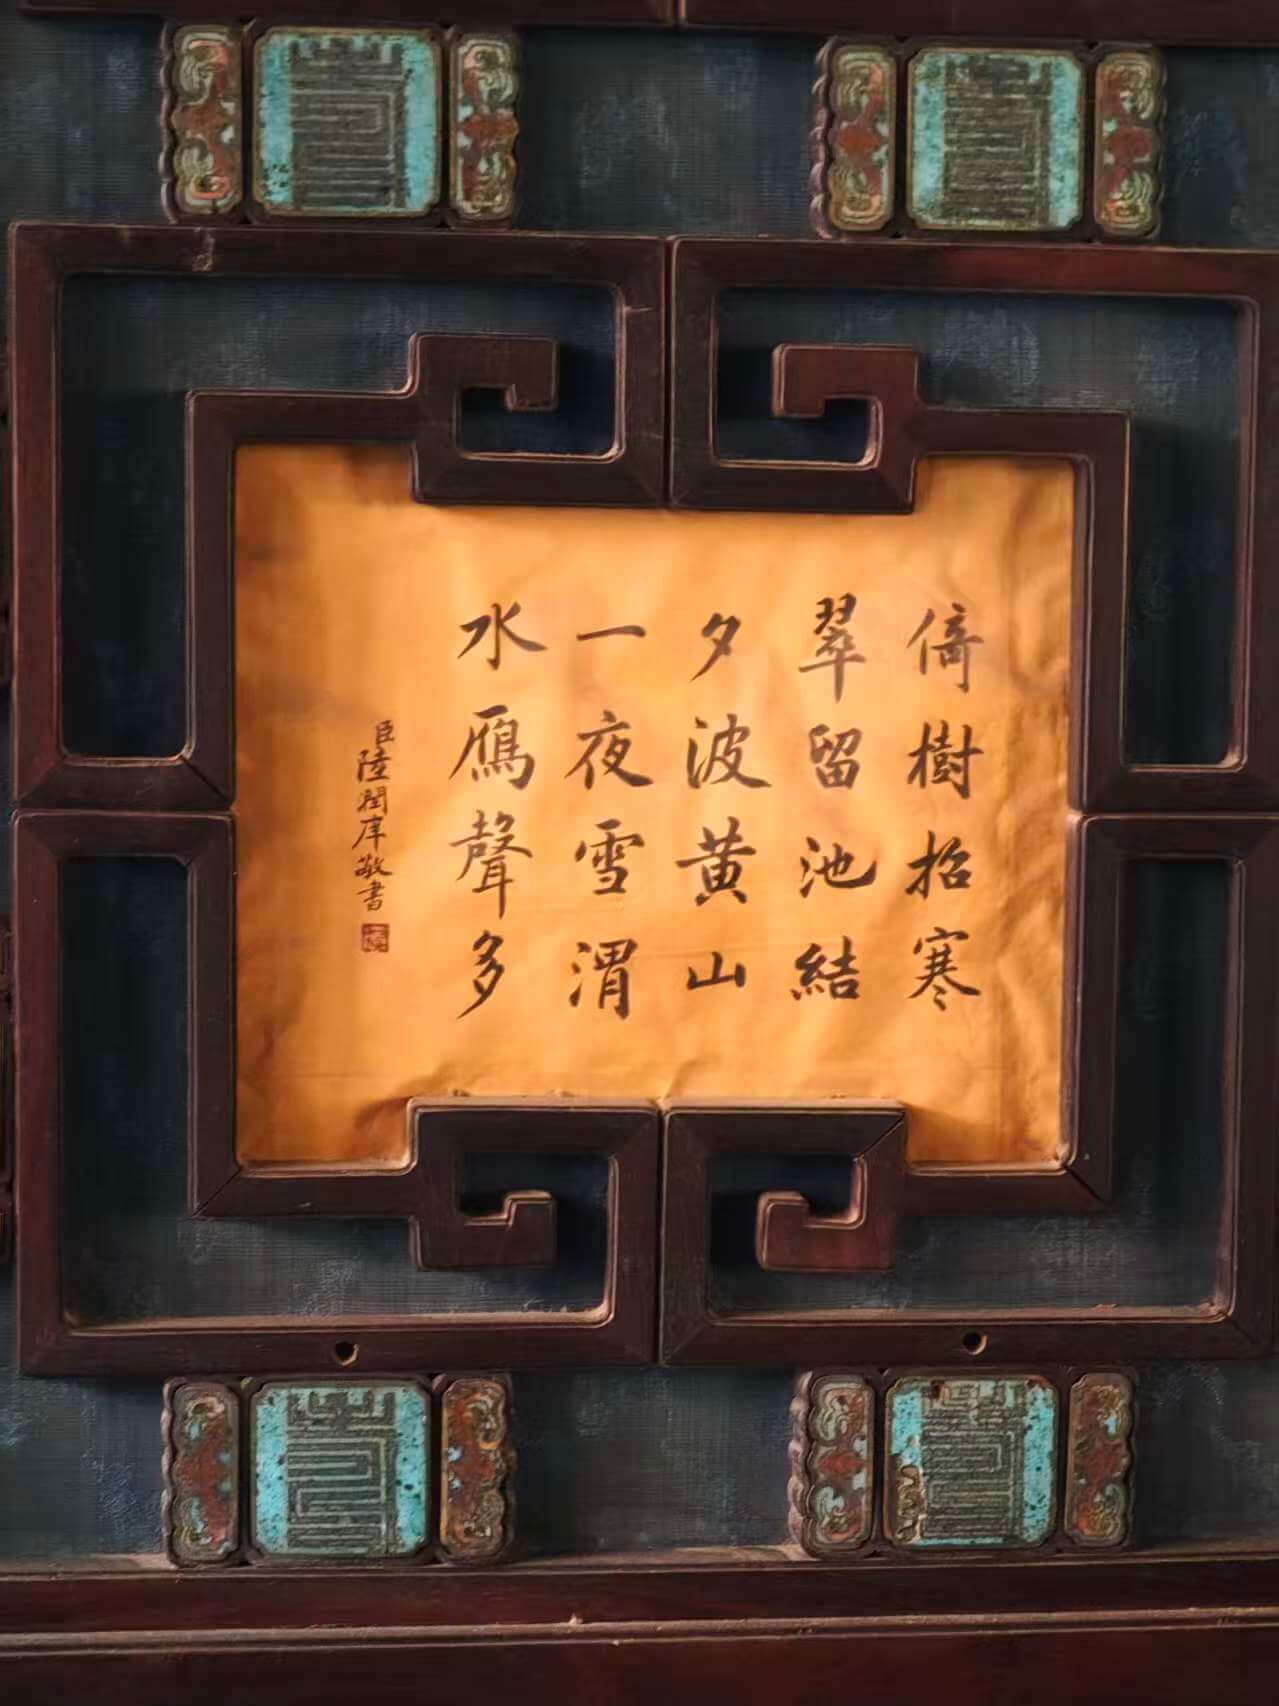 倚樹招寒
翠留池結
夕波黄山
一夜雪渭
水鴈聲多
臣陸潤庠敬書